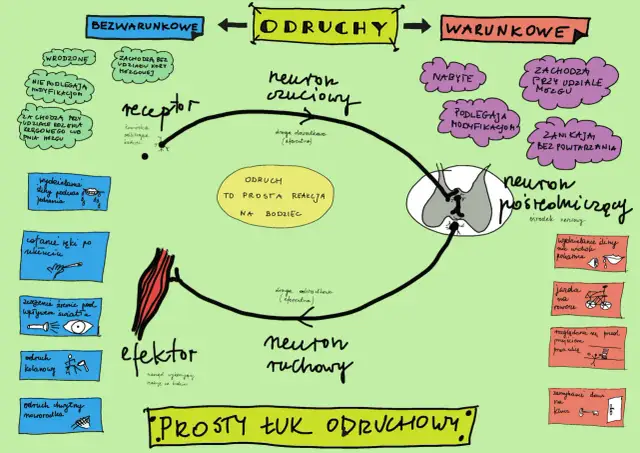 BEZWARUNKOWE
ODRUCHY
WARUNKOWE
WRODZONE
ZACHODZĄ BEZ
UDZIAŁU KORY
MÓZGOWEJ
NIE PODLEGAJĄ
MODYFIKACJOM
ZACHODZĄ PRZY
UDZIALE RDZENIA
KRĘGOWEGO LUB
PNIA MÓZGU
NABYTE
ZACHODZĄ
PRZY UDZIALE
MÓZGU
PODLEGAJĄ
MODYFIKACJOM
ZANIKAJĄ
BEZ POWTARZANIA
receptor
neuron
czuciowy
droga dośrodkowa
ODRUCH
TO PROSTA REAKCJA
NA BODZIEC
neuron
pośredniczący
ośrodek nerwowy
wydzielanie
śliny podczas
jedzenia
cofanie ręki po
ukłuciu
zwężenie źrenic pod
wpływem światła
odruch
kolanowy
odruch chwytny
noworodka
wydzielanie śliny
na widok
pokarmu
jazda
na
rowerze
rozglądanie się przed
przejściem
przez ulicę
zamykanie drzwi
na
klucz
droga odśrodkowa
neuron
ruchowy
efektor
PROSTY ŁUK ODRUCHOWY